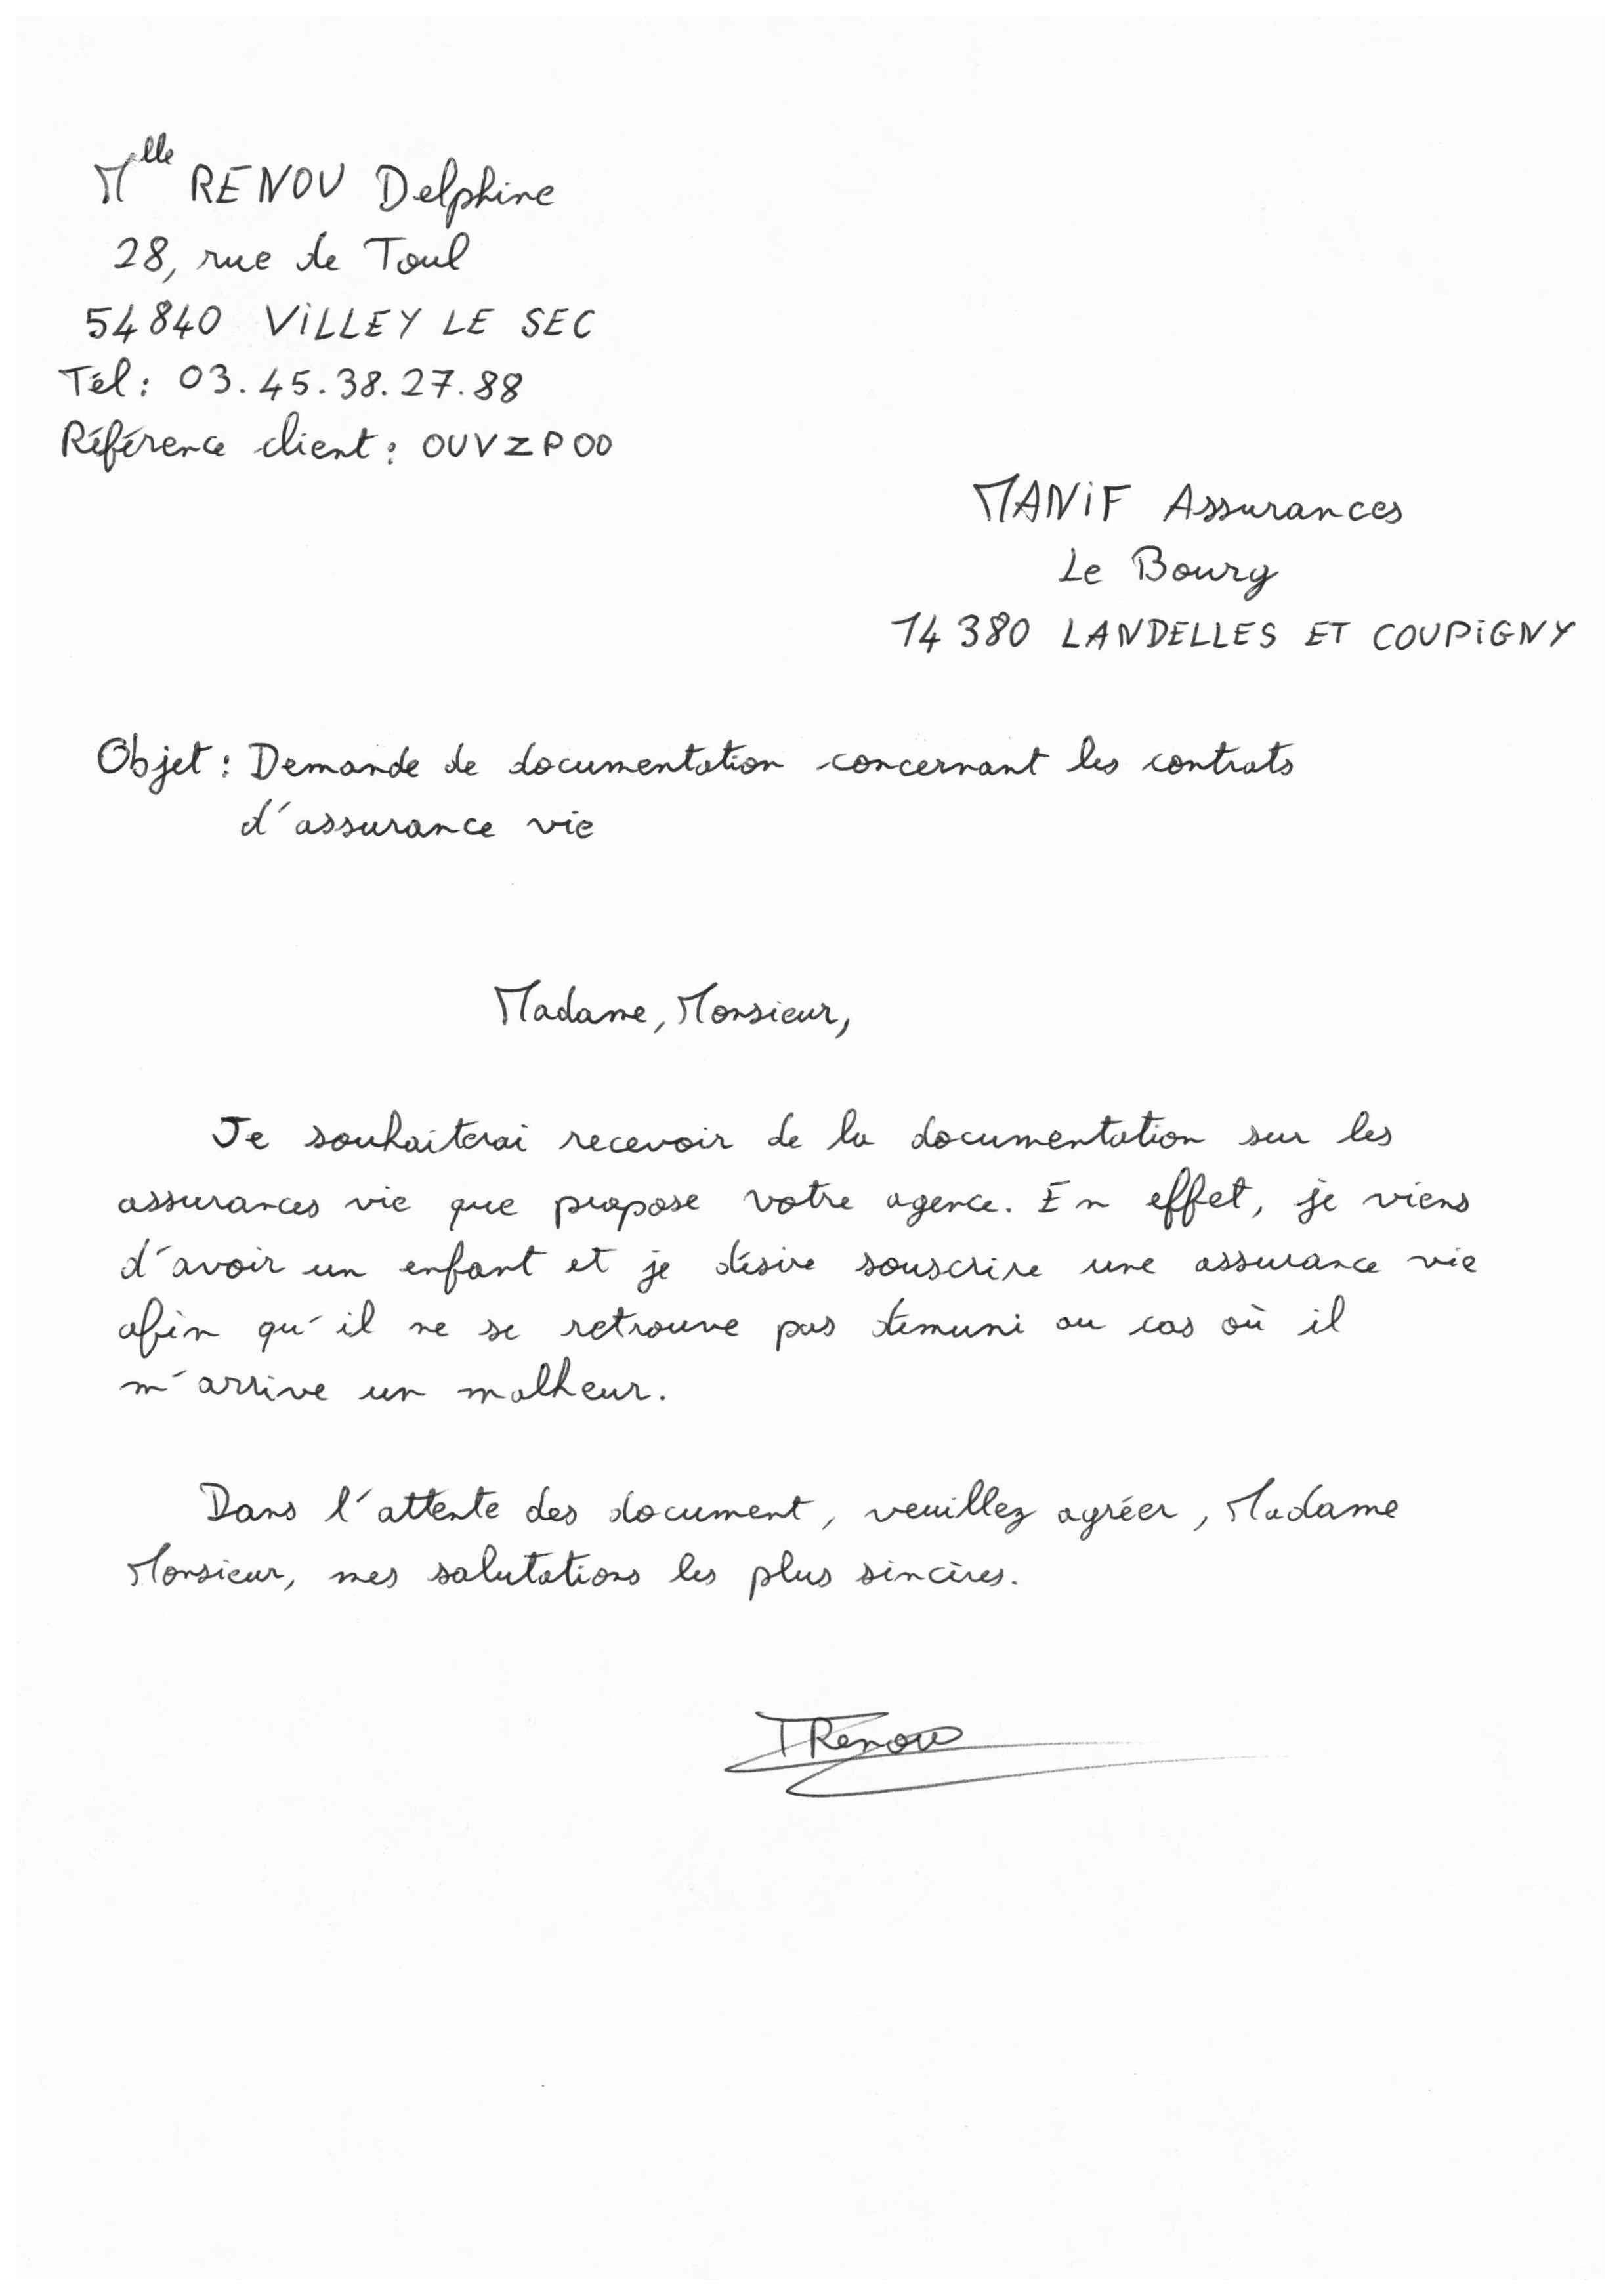 Mlle RENOU Delphine
28, rue de Toul
54840 VILLEY LE SEC
Tél : 03.45.38.27.88
Référence client : OUVZPOO
MANIF Assurances
Le Bourg
14380 LANDELLES ET COUPIGNY
Objet : Demande de documentation concernant les contrats
d'assurance vie
Madame, Monsieur,
Je souhaiterai recevoir de la documentation sur les
assurances vie que propose votre agence. En effet, je viens
d'avoir un enfant et je désire souscrire une assurance vie
afin qu'il ne se retrouve pas démuni au cas où il
m'arrive un malheur.
Dans l'attente des document, veuillez agréer, Madame
Monsieur, mes salutations les plus sincères.
Renou